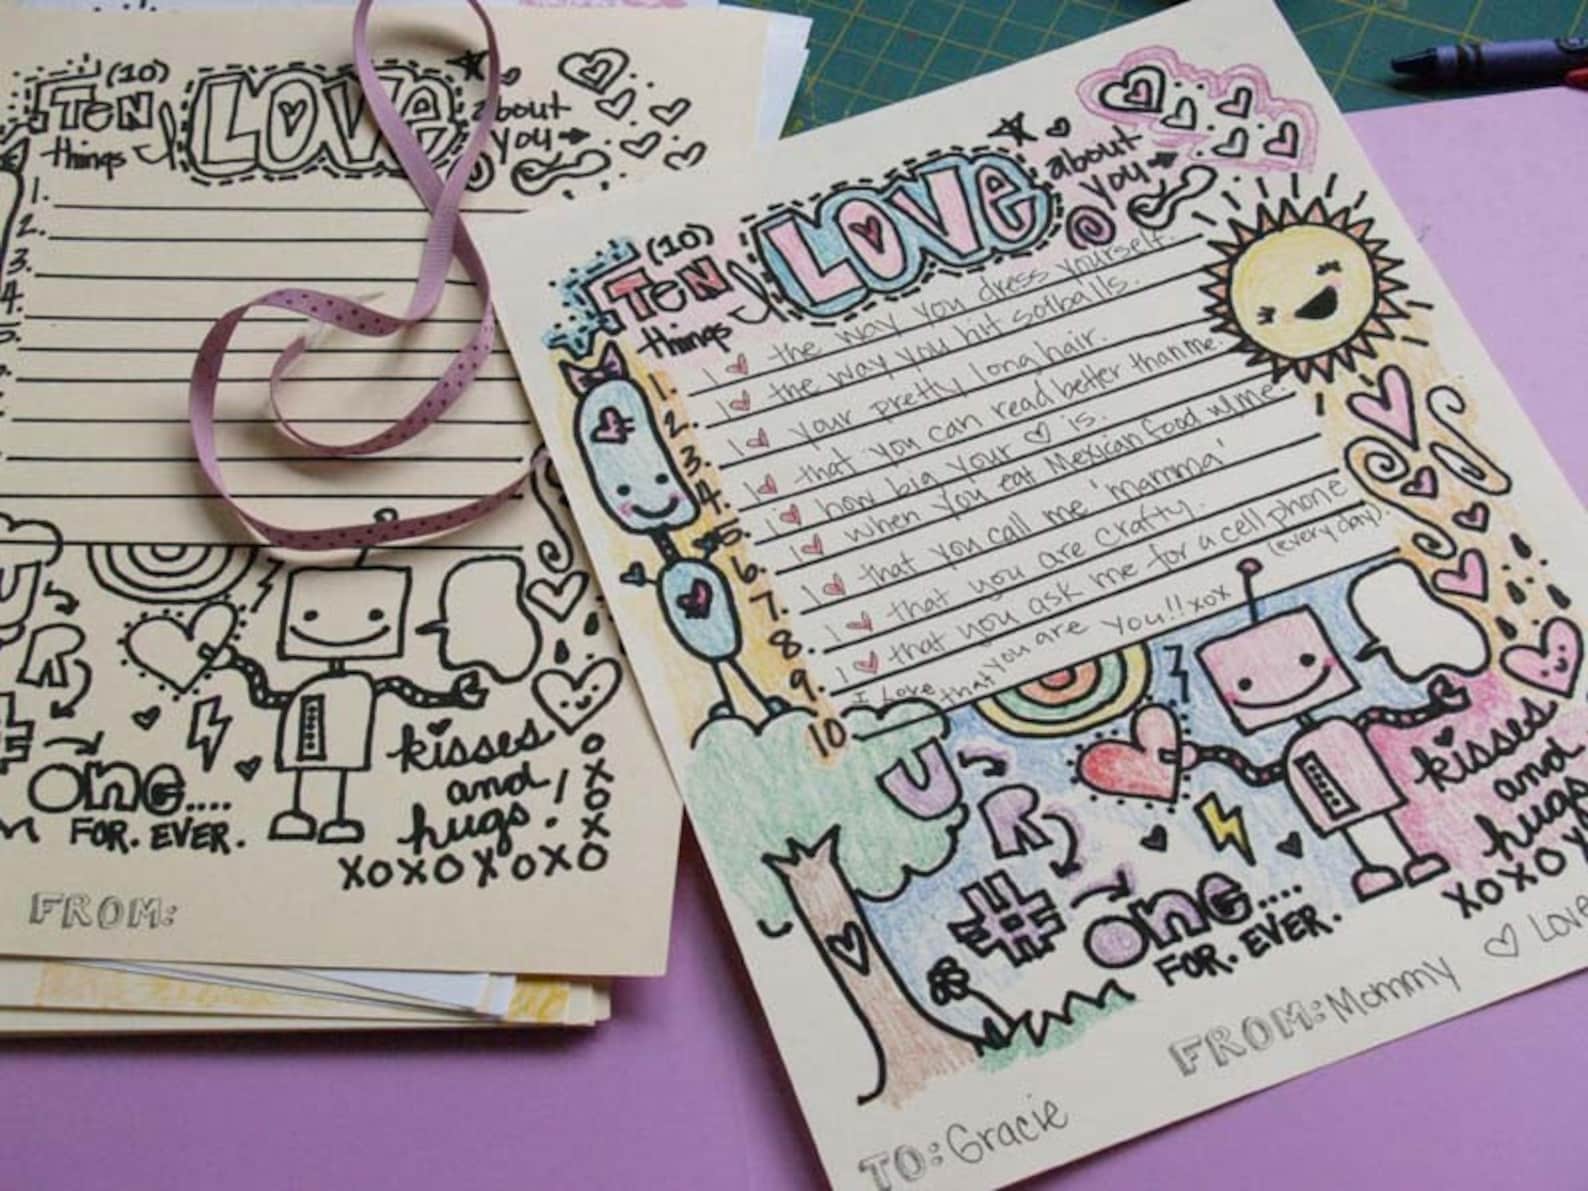 (10)
TEN
things I LOVE about
you
1.
2.
3.
4.
U
R
#
ONE....
FOR. EVER.
kisses
and
hugs!
o
x
o
x
xoxoxoxo
FROM:
(10)
TEN
things I LOVE about
you
1. I ♥ the way you dress yourself.
2. I ♥ the way you hit softballs.
3. I ♥ your pretty long hair.
4. I ♥ that you can read better than me.
5. I ♥ how big your ♡ is.
6. I ♥ when you eat Mexican food w/me.
7. I ♥ that you call me 'mamma'
8. I ♥ that you are crafty.
9. I ♥ that you ask me for a cell phone (every day).
10 I Love that you are you!! xox
U
R
#
ONE....
FOR. EVER.
kisses
and
hugs
xoxox
♡ Love
FROM: Mommy
TO: Gracie